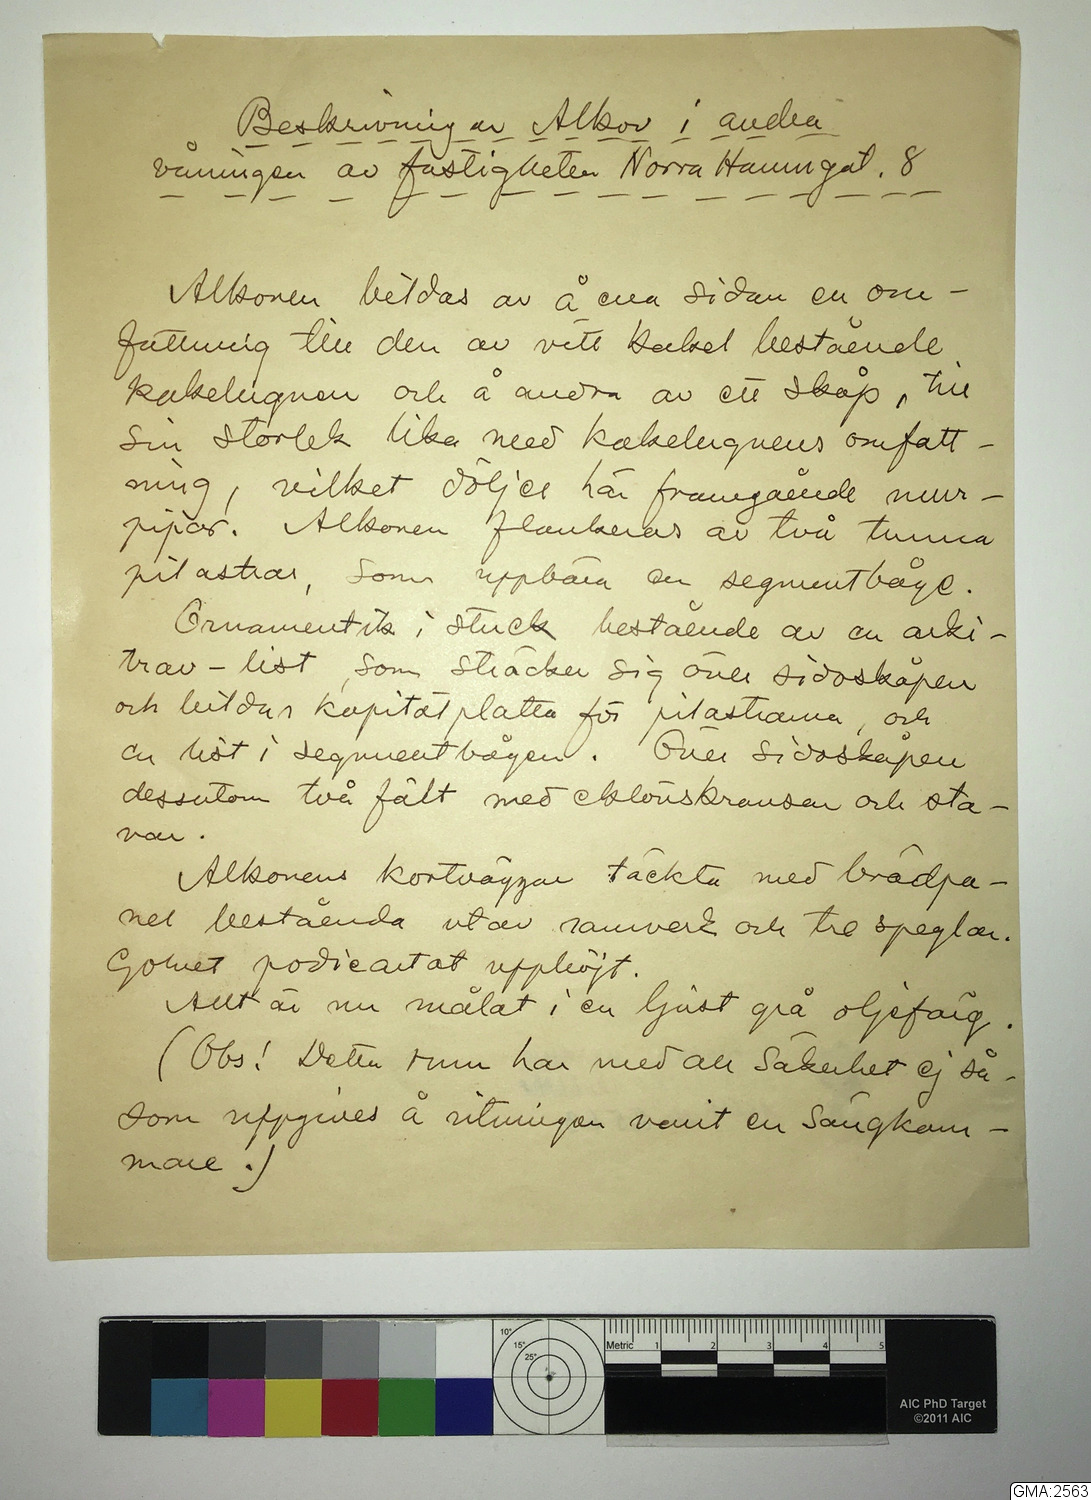 Beskrivning av Alkov i andra
våningen av fastigheten Norra Hamngat. 8
Alkoven bildas av å ena sidan en om-
fattning till den av vitt kakel bestående
kakelugnen och å andra av ett skåp, till
sin storlek lika med kakelugnens omfatt-
ning, vilket döljer här framgående mur-
pipor. Alkoven flankeras av två tunna
pilastrar, som uppbära en segmentbåge.
Ornamentik i stuck bestående av en arki-
trav-list, som sträcker sig över sidoskåpen
och bildar kapitätplatta för pilastrarna, och
en list i segmentbågen. Över sidoskåpen
dessutom två fält med eklövskransar och sta-
var.
Alkovens kortväggar täckta med brädpa-
nel bestående utav ramverk och tre speglar.
Golvet podieartat upphöjt.
Allt är nu målat i en ljust grå oljefärg.
(Obs! Detta rum har med all säkerhet ej så-
som uppgives å ritningen varit en sängkam-
mare.)
10°
15°
25°
Metric 1 2 3 4 5
AIC PhD Target
©2011 AIC
GMA:2563